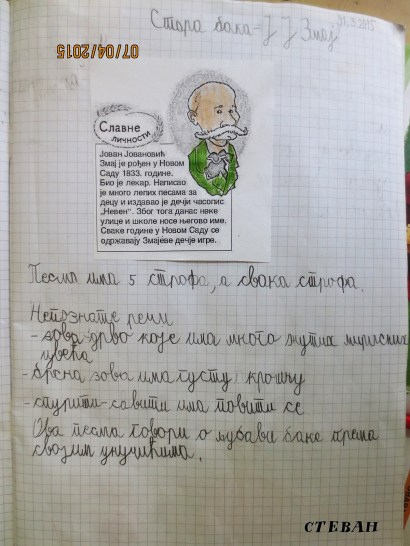 Стара бака - Ј Ј Змај
31.3.2015
07/04/2015
Славне
личности
Јован Јовановић
Змај је рођен у Новом
Саду 1833. године.
Био је лекар. Написао
је много лепих песама за
децу и издавао је дечји часопис
„Невен“. Због тога данас неке
улице и школе носе његово име.
Сваке године у Новом Саду се
одржавају Змајеве дечје игре.
Песма има 5 строфа, а свака строфа.
Непознате речи
- зова-дрво које има много жутих мирисних
цвећа
- брсна зова има густу крошњу
- стурити-савити има повити се
Ова песма говори о љубави баке према
својим унучићима.
СТЕВАН